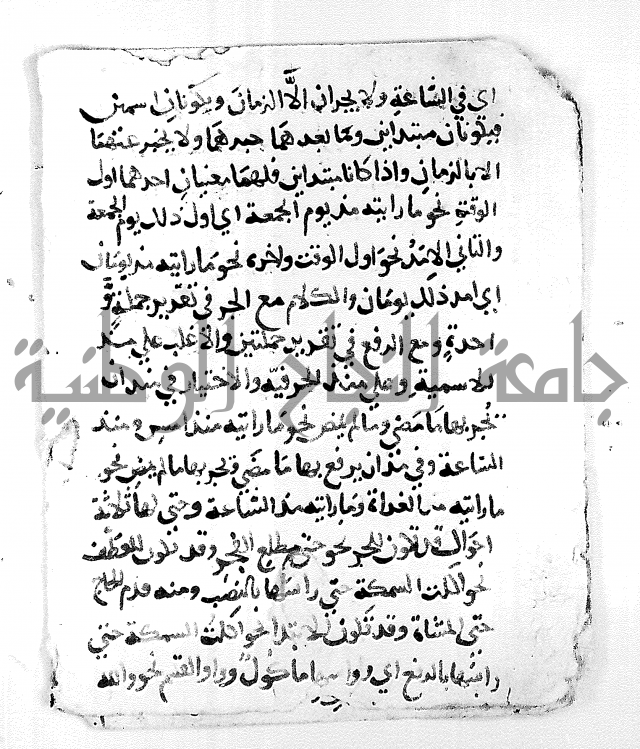 اي في الساعةِ ولا يجران الَّا الزمانَ ويكونانِ اسمين
فيكونان مبتداين وما بعدهما خبرهما ولا يخبر عنهما
الا بالزمانِ واذا كانا مبتداين فلهما معنيانِ احدهما اول
الوقتِ نحو ما رايته منذ يوم الجمعة اي اول ذلك يوم الجمعة
والثاني الامدُ نحو اول الوقت واخره نحو ما رايته مذ يومان
اي امد ذلك يومان والكلام مع الجر في تقدير جملة وَّ
احدةٍ ومع الرفع في تقدير جملتين والاغلب علي مذ
الاسمية وعلي منذ الحرفيه والاختيار في منذ ان
تجر بها ما مضي وما لم يمض نحو ما رايته منذ امسِ ومنذ
الساعة وفي مذ ان يرفع بها ما مضَي وتجر بها ما لم يمض نحو
ما رايته مذ الغداة وما رايته مذ الساعة وحتي لها ثلاثة
احوال قد تكون للجر نحو حتي مطلع الفجر وقد تكون للعطف
نحو اكلت السمكة حتي راسها بالنصب ومنه قدم الحاج
حتي المشاة وقد تكون للابتدا نحو اكلت السمكة حتي
راسُها بالرفع اي وراسها ماكولٌ وواو القسم نحو والله
جامعة النجاح الوطنية